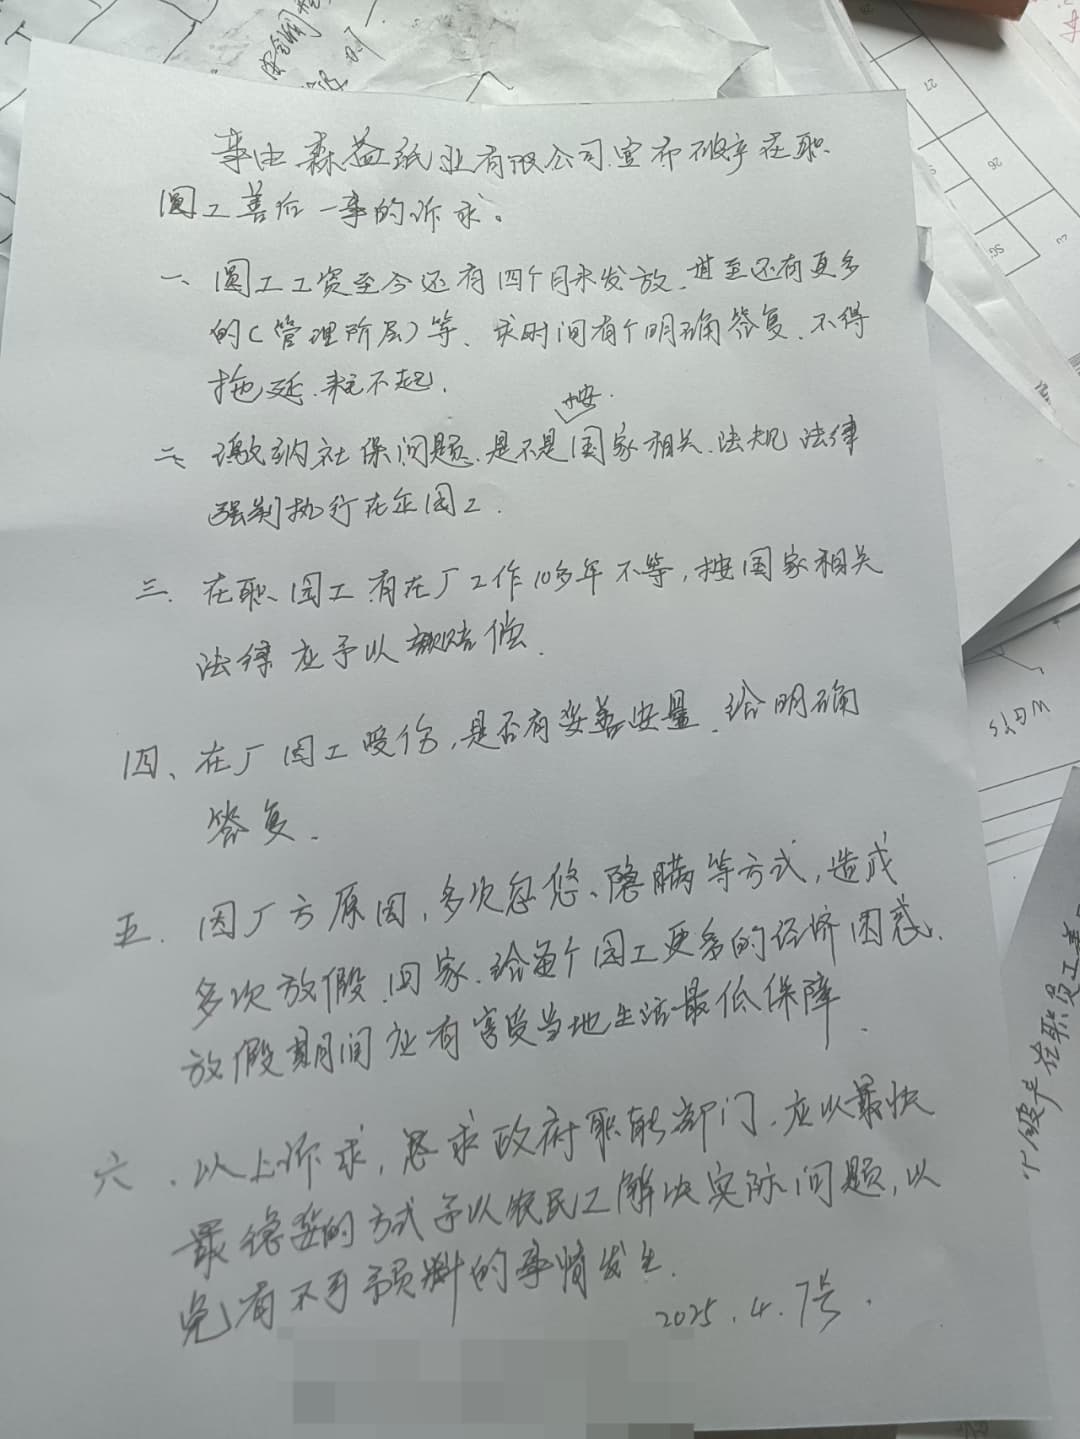 事由森益纸业有限公司.宣布破产在职
园工善后一事的诉求。
一、园工工资至今还有四个月未发放.甚至还有更多
的(管理阶层)等、求时间有个明确答复.不得
拖延.耗不起.
二、缴纳社保问题.是不是按国家相关.法规法律
强制执行在企园工.
三.在职园工有在厂工作10多年不等,按国家相关
法律应予以赔偿.
四、在厂园工受伤,是否有妥善安量.给明确
答复.
五.因厂方原因,多次忽悠、隐瞒等方式,造成
多次放假.回家.给每个园工更多的经济困惑.
放假期间应有享受当地生活最低保障.
六.以上诉求,恳求政府职能部门.应以最快
最稳妥的方式予以农民工解决实际问题,以
免有不可预料的事情发生.
2025.4.7号.
破产在职员工善
27
26
3